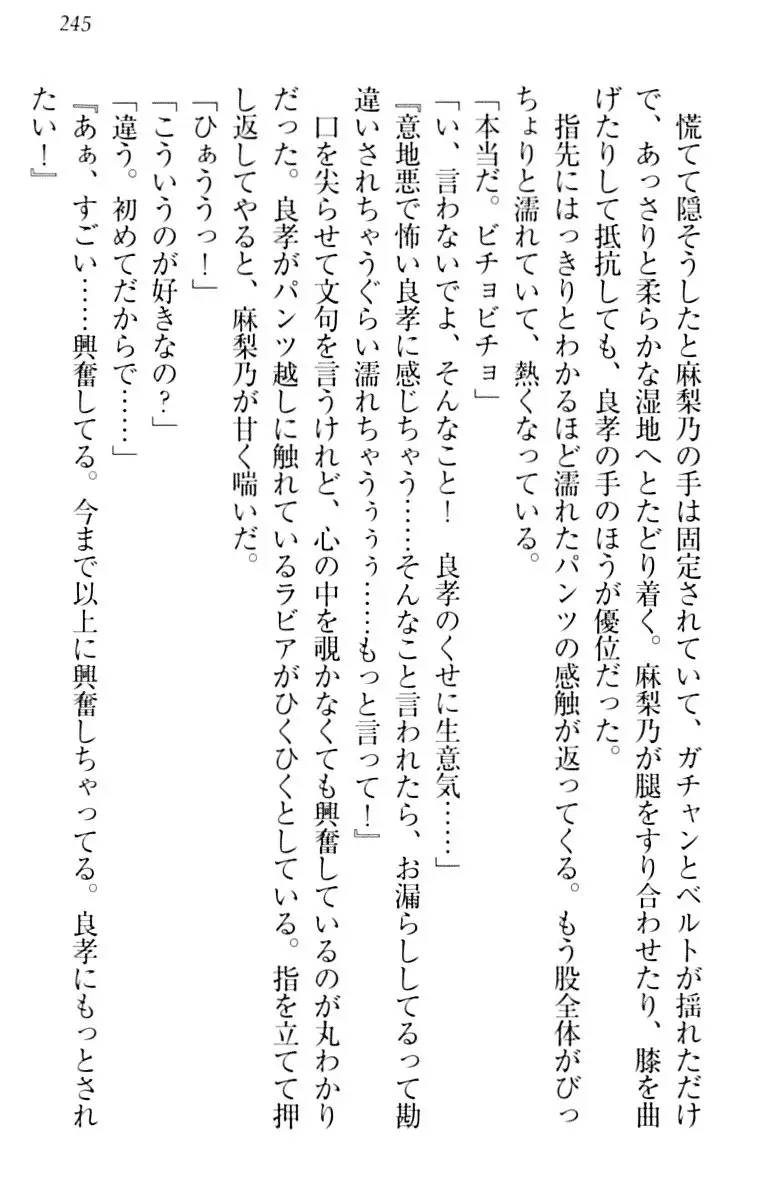 245
慌てて隠そうしたと麻梨乃の手は固定されていて、ガチャンとベルトが揺れただけ
で、あっさりと柔らかな湿地へとたどり着く。麻梨乃が腿をすり合わせたり、膝を曲
げたりして抵抗しても、良孝の手のほうが優位だった。
指先にはっきりとわかるほど濡れたパンツの感触が返ってくる。もう股全体がびっ
ちょりと濡れていて、熱くなっている。
「本当だ。ビチョビチョ」
「い、言わないでよ、そんなこと！　良孝のくせに生意気……」
『意地悪で怖い良孝に感じちゃう……そんなこと言われたら、お漏らししてるって勘
違いされちゃうぐらい濡れちゃうぅぅぅ……もっと言って！』
口を尖らせて文句を言うけれど、心の中を覗かなくても興奮しているのが丸わかり
だった。良孝がパンツ越しに触れているラビアがひくひくとしている。指を立てて押
し返してやると、麻梨乃が甘く喘いだ。
「ひぁううっ！」
「こういうのが好きなの？」
「違う。初めてだからで……」
『あぁ、すごい……興奮してる。今まで以上に興奮しちゃってる。良孝にもっとされ
たい！』